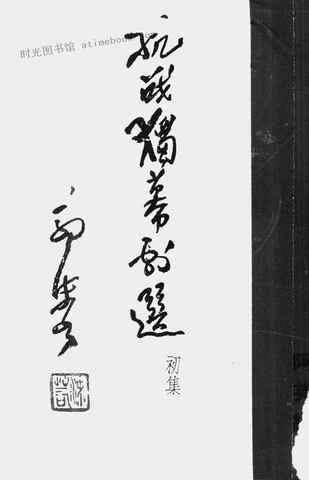 时光图书馆
抗戰獨幕劇選
初集
郭沫若
沫若